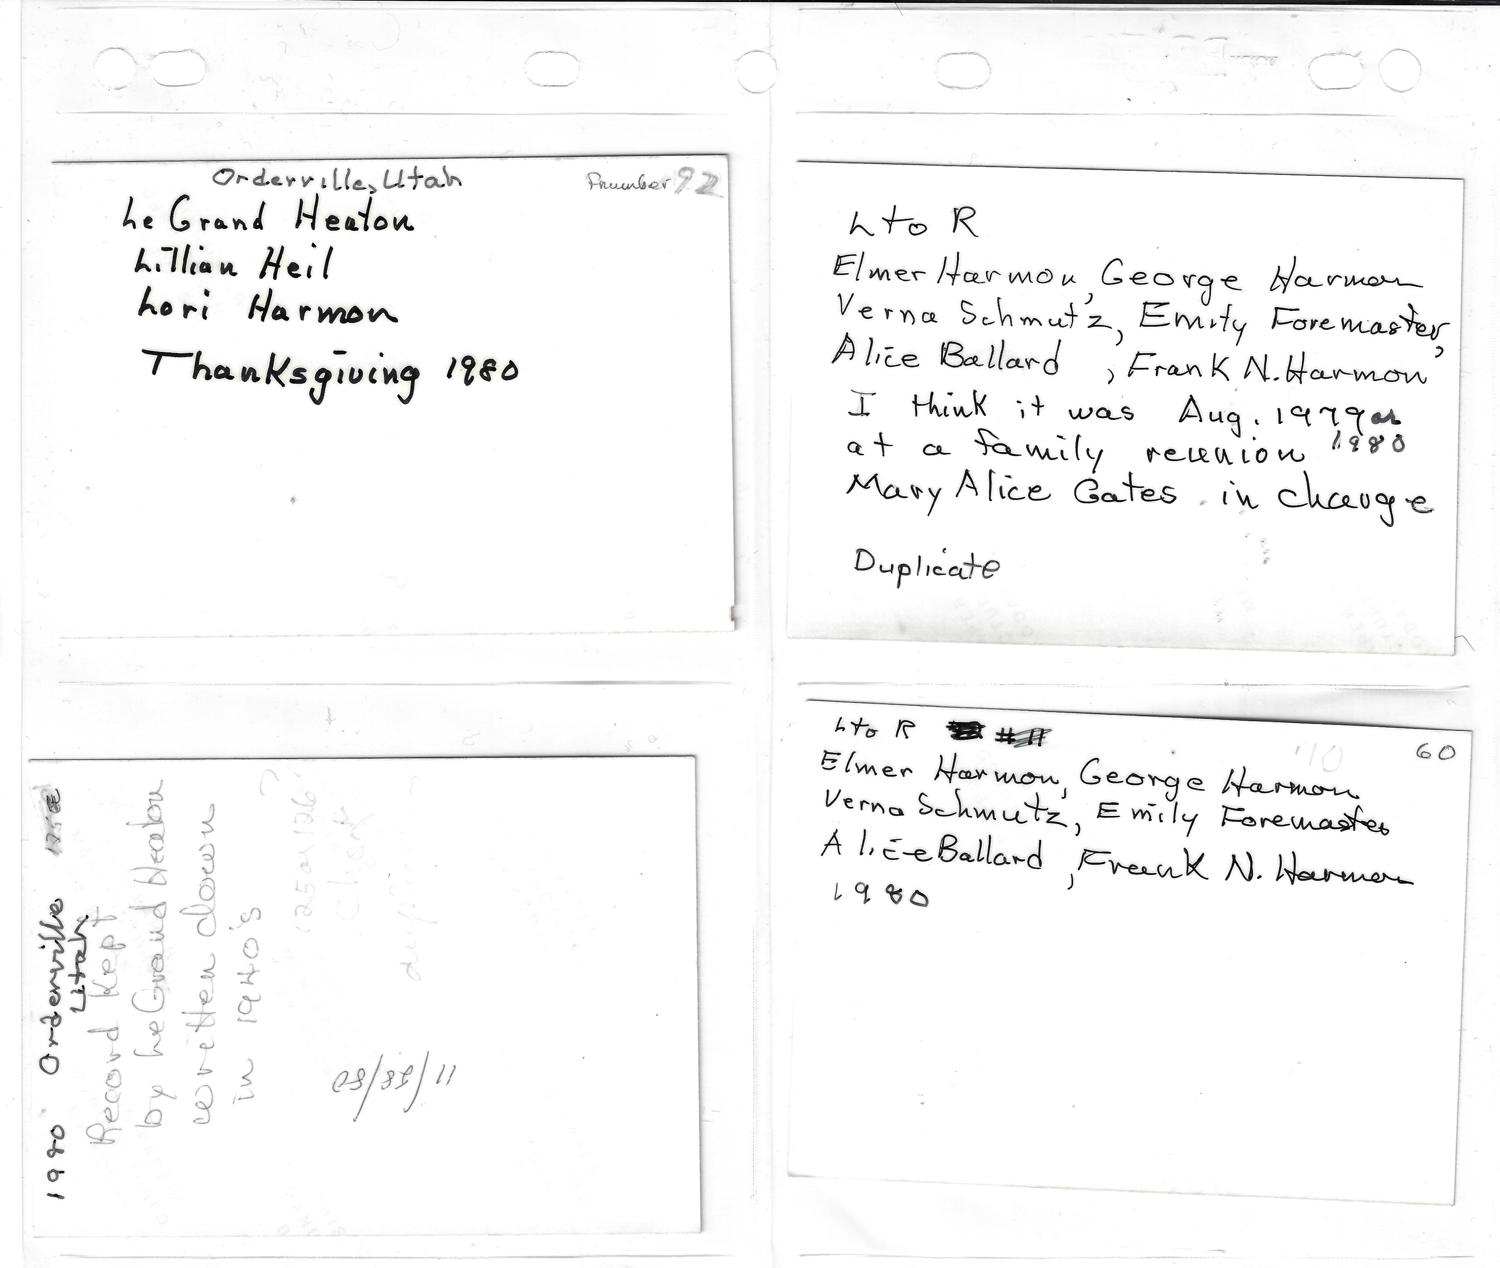 Orderville, Utah
Pnumber 92
LeGrand Heaton
Lillian Heil
Lori Harmon
Thanksgiving 1980
L to R
Elmer Harmon, George Harmon
Verna Schmutz, Emily Foremaster,
Alice Ballard, Frank N. Harmon
I think it was Aug. 1979 or
1980
at a family reunion
Mary Alice Gates in charge
Duplicate
1980 Orderville
Utah
Record Kept
by LeGrand Heaton
written down
in 1940's
?
125 or 126
check
dup
L to R #11
60
Elmer Harmon, George Harmon
Verna Schmutz, Emily Foremaster
Alice Ballard, Frank N. Harmon
1980